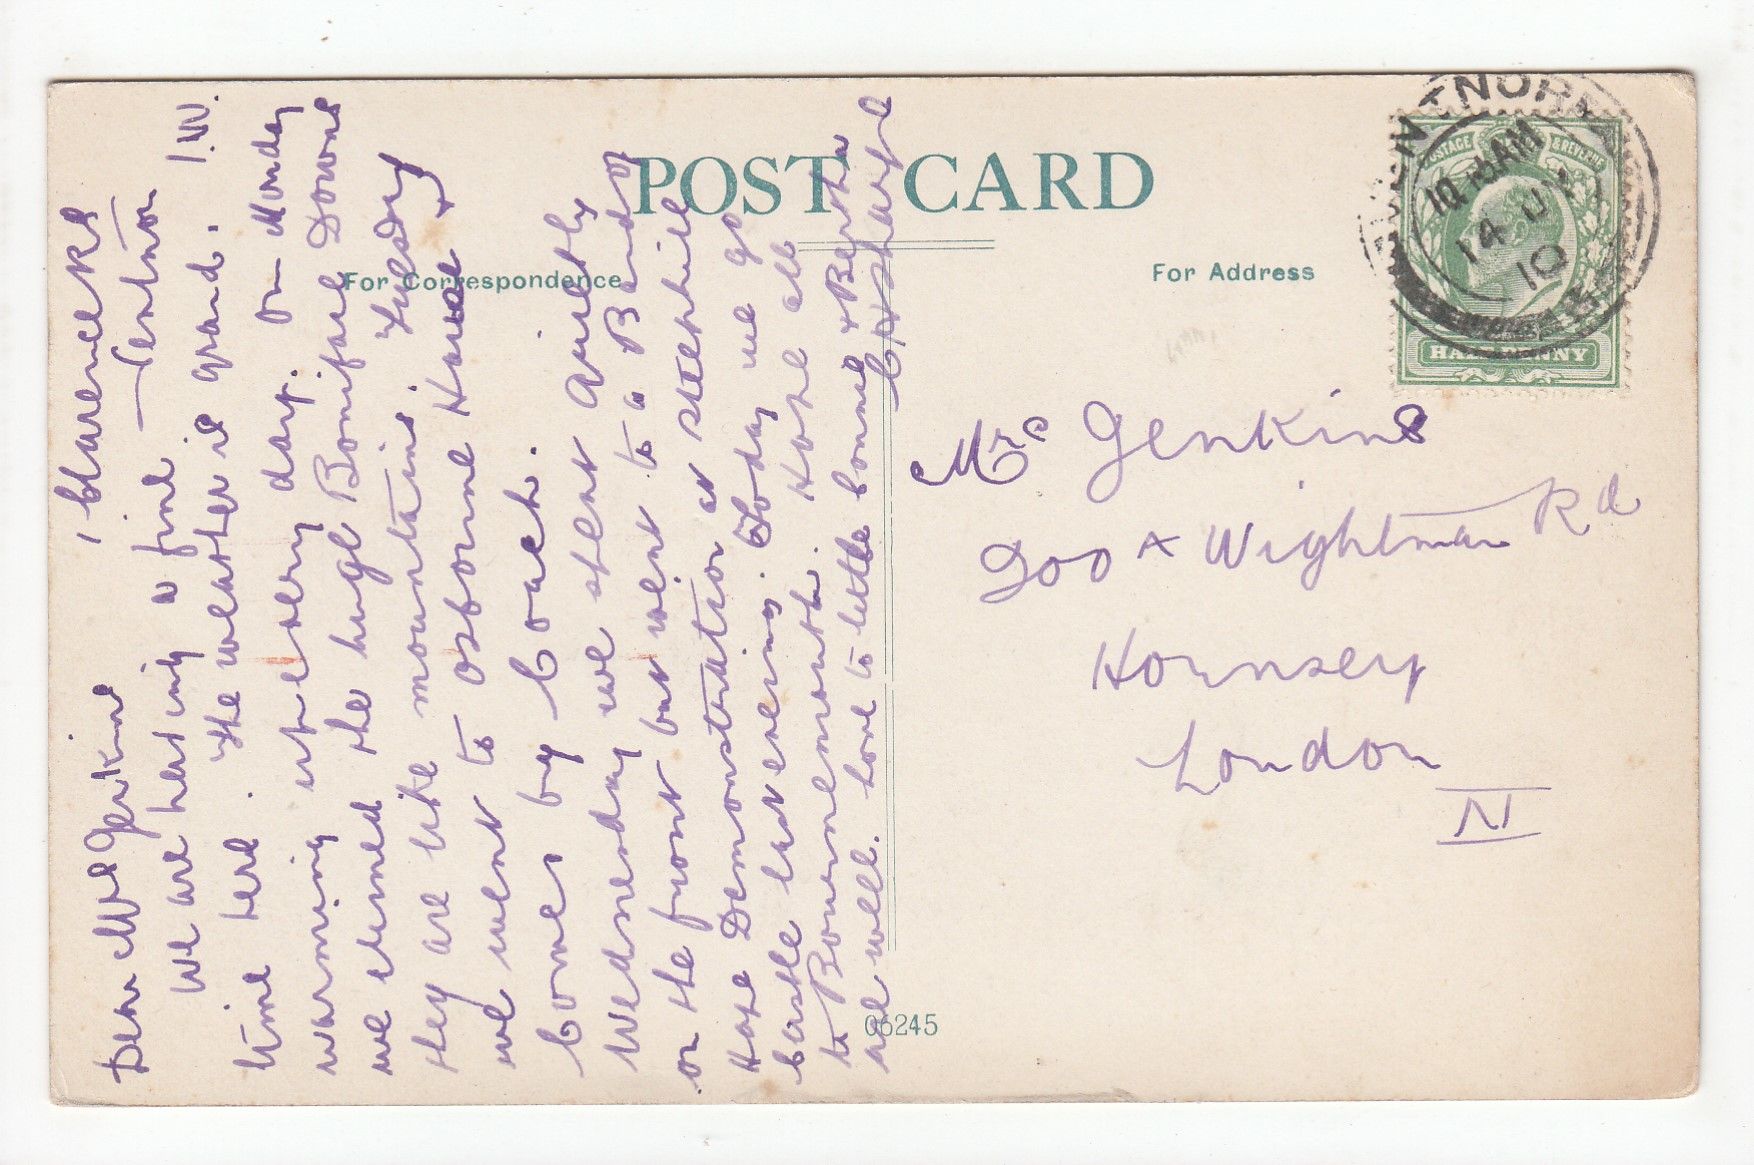 POST CARD
For Correspondence
For Address
06245
VENTNOR
10 15 AM
14 JY
10
POSTAGE & REVENUE
HALFPENNY
Clarence Rd
Ventnor
I.W.
Dear Mrs Jenkins
We are having a fine
time here. The weather is grand.
warming up every day. On Monday
we climed the huge Boniface Downs
they are like mountains. Tuesday
we went to Osborne House &
Cowes by Coach.
Wednesday we spent quietly
on the front but went to a Band of
Hope Demonstration at Steephill
Castle last evening. Today we go
to Bournemouth. Hope all
are well. Love to little Connie & Bertha
C H Sharpe
Mrs Jenkins
Wightman Rd
Hornsey
London
N